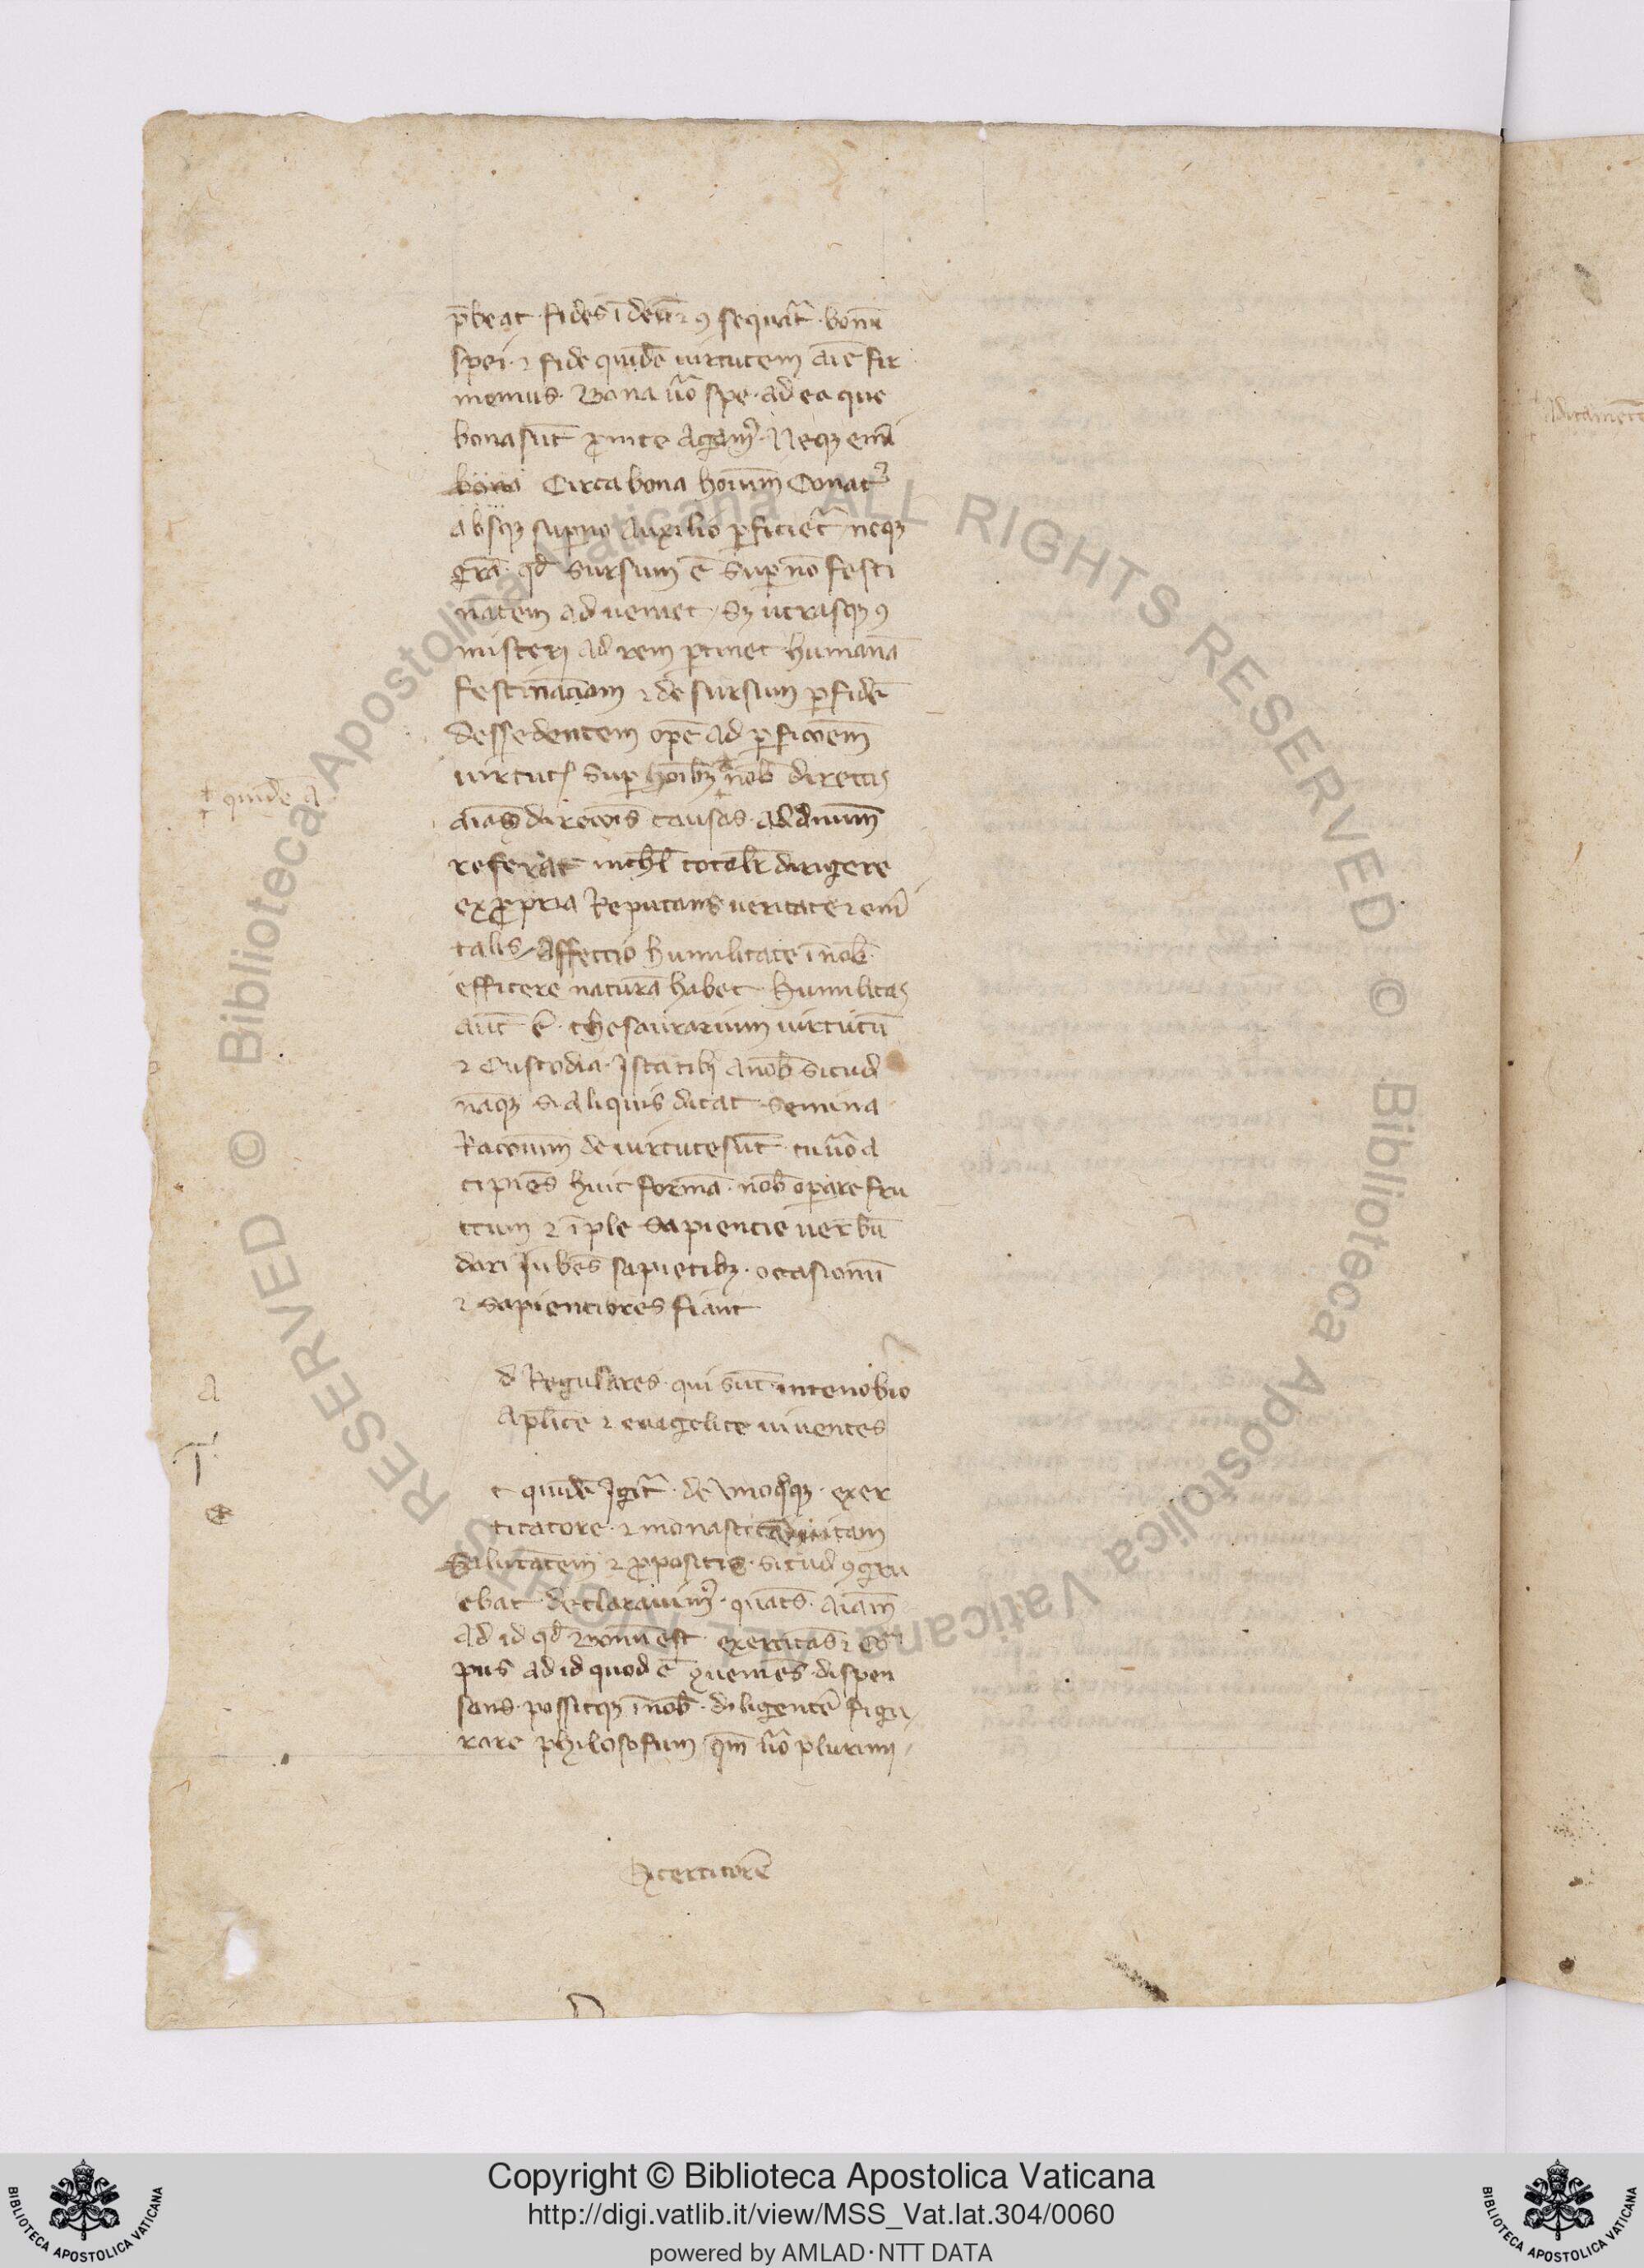 p̄beat fides ī deū ⁊ ꝯ sequat᷑ bonū
spei · ⁊ fide quidē uirtutem aīe fir
memus · Bona ūo spe · ad ea que
bona sūt
bona Circa bona hoīum Conat᷒
absqꝫ suꝑno Auxilio ꝑficiet᷑ neqꝫ
gr̄a · qd̄ sursum ē suꝑ nō festi
nātem adueniet / sꝫ utrasqꝫ ꝯ
misceri ad rem ꝑtinet humanā
festinac̄iom ⁊ de sursum ꝑ fidē
dessedentem opē ad ꝑfic̄oēm
uirtut sup hoībꝫ nob̄ directis
† quidē
aīas direc̄ois causas · ad dnūm
referat nichl̄ totalr̄ dirigere
ex ꝓpria Reputans ueritate ⁊ enī
talis / Affectio humilitatē ī nob̄
efficere naturā habet · humilitas
aūt ē · thesaurarium uirtutū
⁊ Custodia · Ista tibi a nob̄ sicud
nāqꝫ si aliquis dicat semina
Rac̄onum de uirtute sūt · tu ūo a
cipiēs huic formā · nob̄ operare fru
ctum ⁊ īple sapiencie uerbū
dari Iubēs sapiētibꝫ · ocasionū
⁊ sapienciores fiant
a
d Regulares · qui sūt in cenobio
Aplīce ⁊ euāgelice uiuentes
e
t quidē Igit᷑ · de Vnoqꝫqꝫ · exer
citatore · ⁊ monasticā uitam
Salutātem ⁊ ꝓpositis · sicud ꝯgru
ebat declarauim᷒ · quat̄s aīam
ad id qd̄ Bonū est exercitās ⁊ cor
pus ad id quod ē ꝯueniēs · dispen
sans · possitqꝫ ī nob̄ · diligentē figu
rare philosofum qm̄ ūo plurimi
Exercitorē
Aditamentū
Copyright © Biblioteca Apostolica Vaticana
http://digi.vatlib.it/view/MSS_Vat.lat.304/0060
powered by AMLAD·NTT DATA
BIBLIOTECA APOSTOLICA VATICANA
BIBLIOTECA APOSTOLICA VATICANA
© Biblioteca Apostolica Vaticana ALL RIGHTS RESERVED © Biblioteca Apostolica Vaticana ALL RIGHTS RESERVED